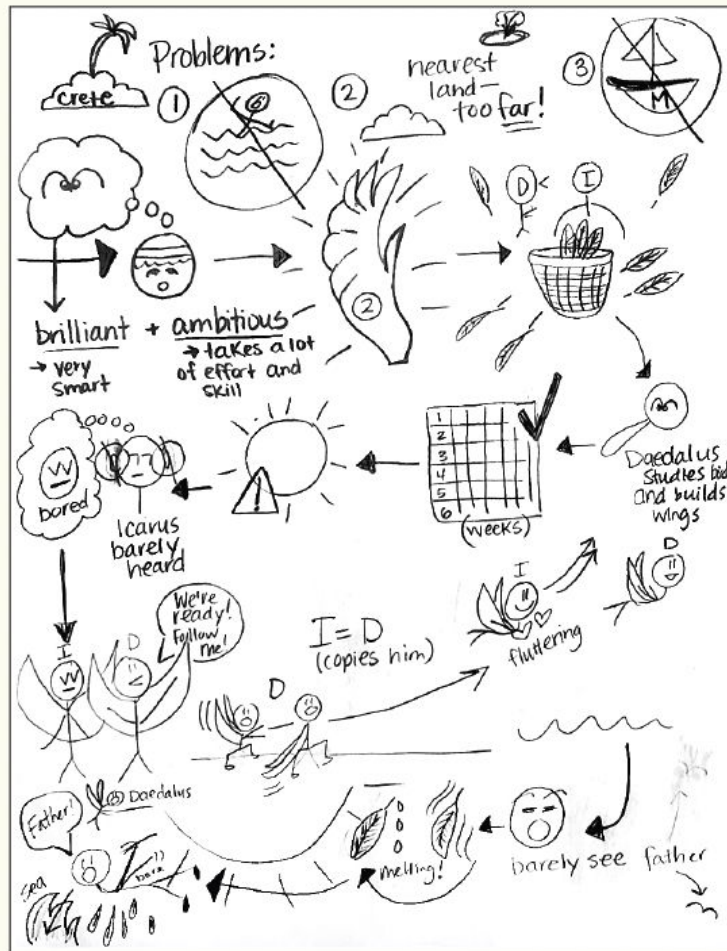 crete
Problems:
1
2
nearest
land—
too far!
3
M
D
I
2
brilliant + ambitious
→ very
smart
→ takes a lot
of effort and
skill
Daedalus
studies bird
and builds
wings
1
2
3
4
5
6
(weeks)
!
bored
Icarus
barely
heard
I
D
We're
ready!
Follow
me!
I = D
(copies him)
D
I
fluttering
D
Father!
Daedalus
bare
sea
melting!
barely see father